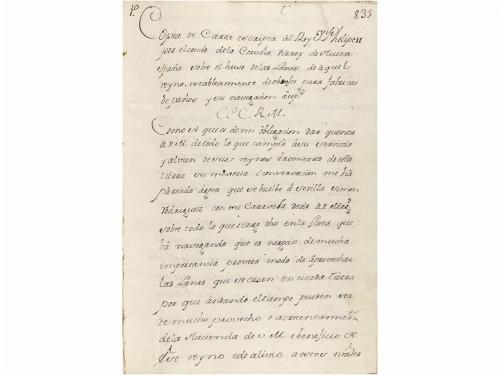 1º 835
Copia de Carta escripta al Rey Dn Phelipe II
por el conde de la Coruña Virrey de Nueva
españa sobre el huso de las Lanas de aquel
reyno, establecimiento de obrajes para fabricas
de paños y su navegacion
C. C. R. M.
Como sé que es de mi obligacion dar quenta
á V M. de todo lo que cumple á su servicio
y al vien de sus reynos é aumento de esta
tierra su memoria é conservacion me ha
parecido agora que se buelbe á Sevilla Simon
con su Caravela decir á V. Magd
sobre todo lo que tengo dho en la flota que
bá navegando que es negocio de mucha
importancia proveer modo de aprovechar
las Lanas que se crian en esta tierra
por que andando el tiempo pueden ser
de mucho provecho é acrecentamto
de la Hacienda de V M. é beneficio de
este reyno é de alivio a esos